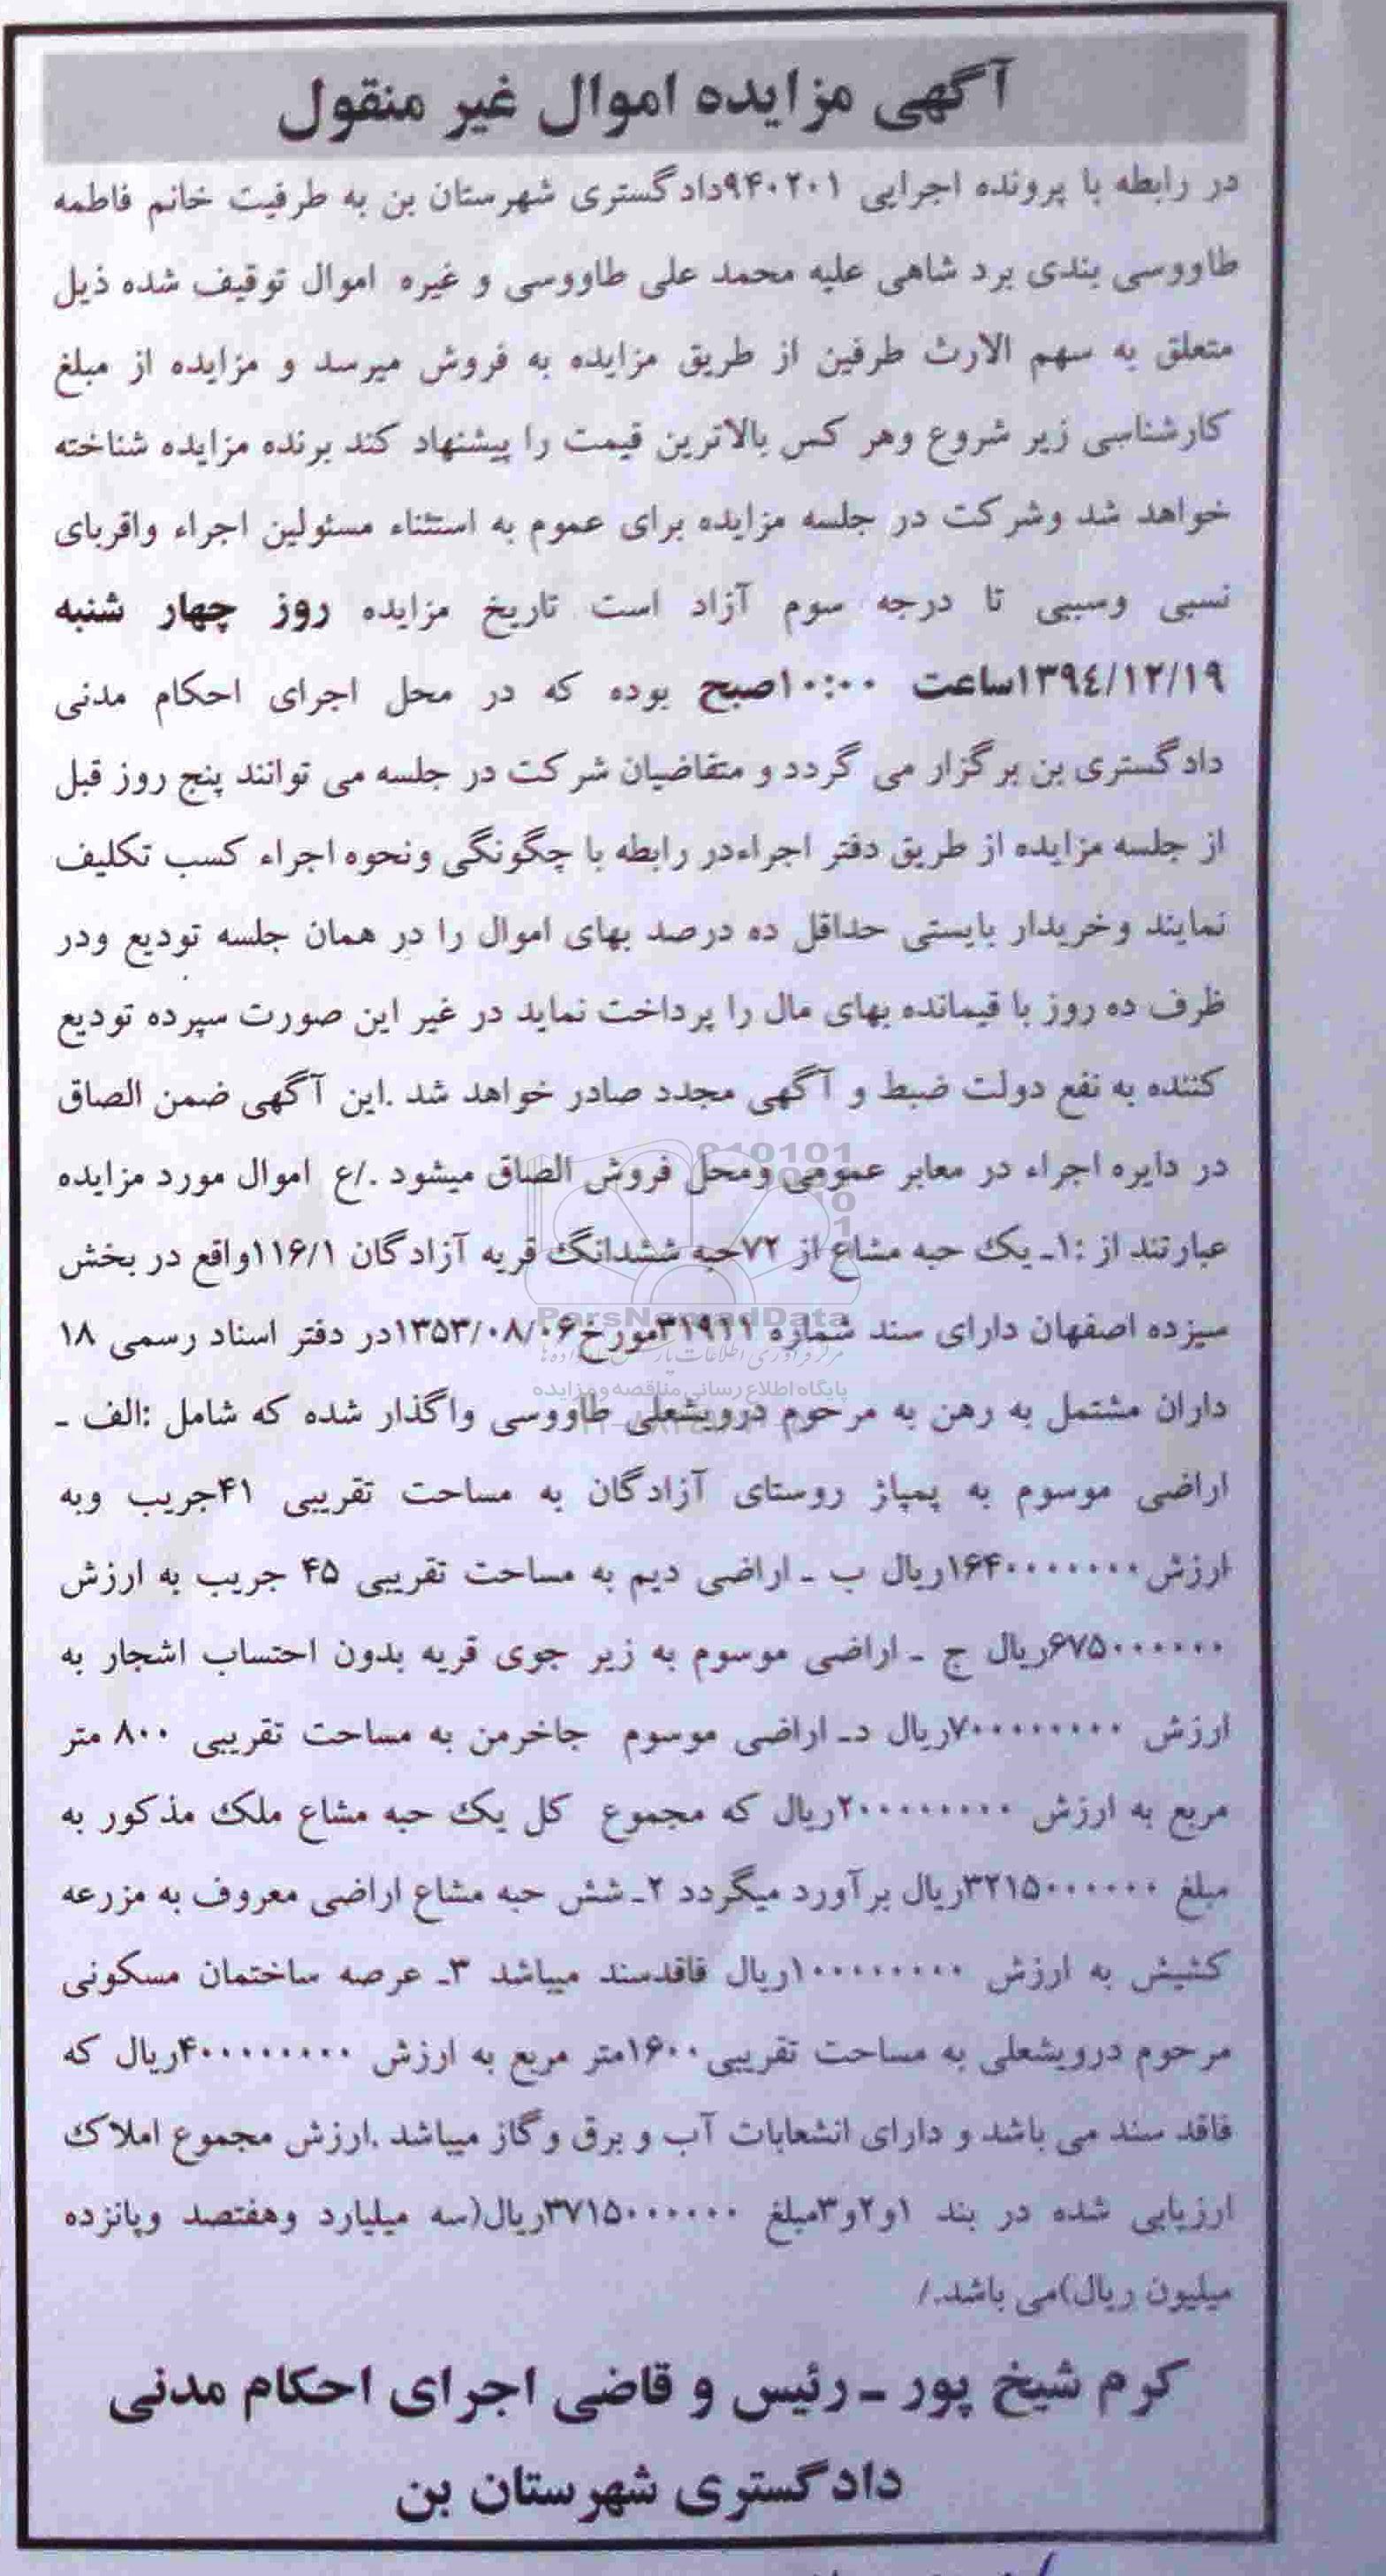 آگهی مزایده اموال غیر منقول
در رابطه با پرونده اجرایی ۹۴۰۲۰۱دادگستری شهرستان بن به طرفیت خانم فاطمه
طاووسی بندی برد شاهی علیه محمد علی طاووسی و غیره اموال توقیف شده ذیل
متعلق به سهم الارث طرفین از طریق مزایده به فروش میرسد و مزایده از مبلغ
کارشناسی زیر شروع وهر کس بالاترین قیمت را پیشنهاد کند برنده مزایده شناخته
خواهد شد وشرکت در جلسه مزایده برای عموم به استثناء مسئولین اجراء واقربای
نسبی وسببی تا درجه سوم آزاد است تاریخ مزایده روز چهار شنبه
۱۳۹٤/۱۲/۱۹ساعت ۱۰:۰۰صبح بوده که در محل اجرای احکام مدنی
دادگستری بن برگزار می گردد و متقاضیان شرکت در جلسه می توانند پنج روز قبل
از جلسه مزایده از طریق دفتر اجراءدر رابطه با چگونگی ونحوه اجراء کسب تکلیف
نمایند وخریدار بایستی حداقل ده درصد بهای اموال را در همان جلسه تودیع ودر
ظرف ده روز با قیمانده بهای مال را پرداخت نماید در غیر این صورت سپرده تودیع
کننده به نفع دولت ضبط و آگهی مجدد صادر خواهد شد .این آگهی ضمن الصاق
در دایره اجراء در معابر عمومی ومحل فروش الصاق میشود ./ع اموال مورد مزایده
عبارتند از :۱ـ یک حبه مشاع از ۷۲حبه ششدانگ قریه آزادگان ۱۱۶/۱واقع در بخش
سیزده اصفهان دارای سند شماره ۳۱۹۱۱مورخ۱۳۵۳/۰۸/۰۶در دفتر اسناد رسمی ۱۸
داران مشتمل به رهن به مرحوم درویشعلی طاووسی واگذار شده که شامل :الف ـ
اراضی موسوم به پمپاژ روستای آزادگان به مساحت تقریبی ۴۱جریب وبه
ارزش۱۶۴۰۰۰۰۰۰۰ریال ب ـ اراضی دیم به مساحت تقریبی ۴۵ جریب به ارزش
۶۷۵۰۰۰۰۰۰ریال ج ـ اراضی موسوم به زیر جوی قریه بدون احتساب اشجار به
ارزش ۷۰۰۰۰۰۰۰۰ریال د ـ اراضی موسوم جاخرمن به مساحت تقریبی ۸۰۰ متر
مربع به ارزش ۲۰۰۰۰۰۰۰۰ریال که مجموع کل یک حبه مشاع ملک مذکور به
مبلغ ۳۲۱۵۰۰۰۰۰۰ریال برآورد میگردد ۲ـ شش حبه مشاع اراضی معروف به مزرعه
کشیش به ارزش ۱۰۰۰۰۰۰۰۰ریال فاقدسند میباشد ۳ـ عرصه ساختمان مسکونی
مرحوم درویشعلی به مساحت تقریبی۱۶۰۰متر مربع به ارزش ۴۰۰۰۰۰۰۰۰ریال که
فاقد سند می باشد و دارای انشعابات آب و برق و گاز میباشد .ارزش مجموع املاک
ارزیابی شده در بند ۱و۲و۳مبلغ ۳۷۱۵۰۰۰۰۰۰ریال(سه میلیارد وهفتصد وپانزده
میلیون ریال)می باشد./
کرم شیخ پور ـ رئیس و قاضی اجرای احکام مدنی
دادگستری شهرستان بن
ParsNamadData
پایگاه اطلاع رسانی مناقصه و مزایده